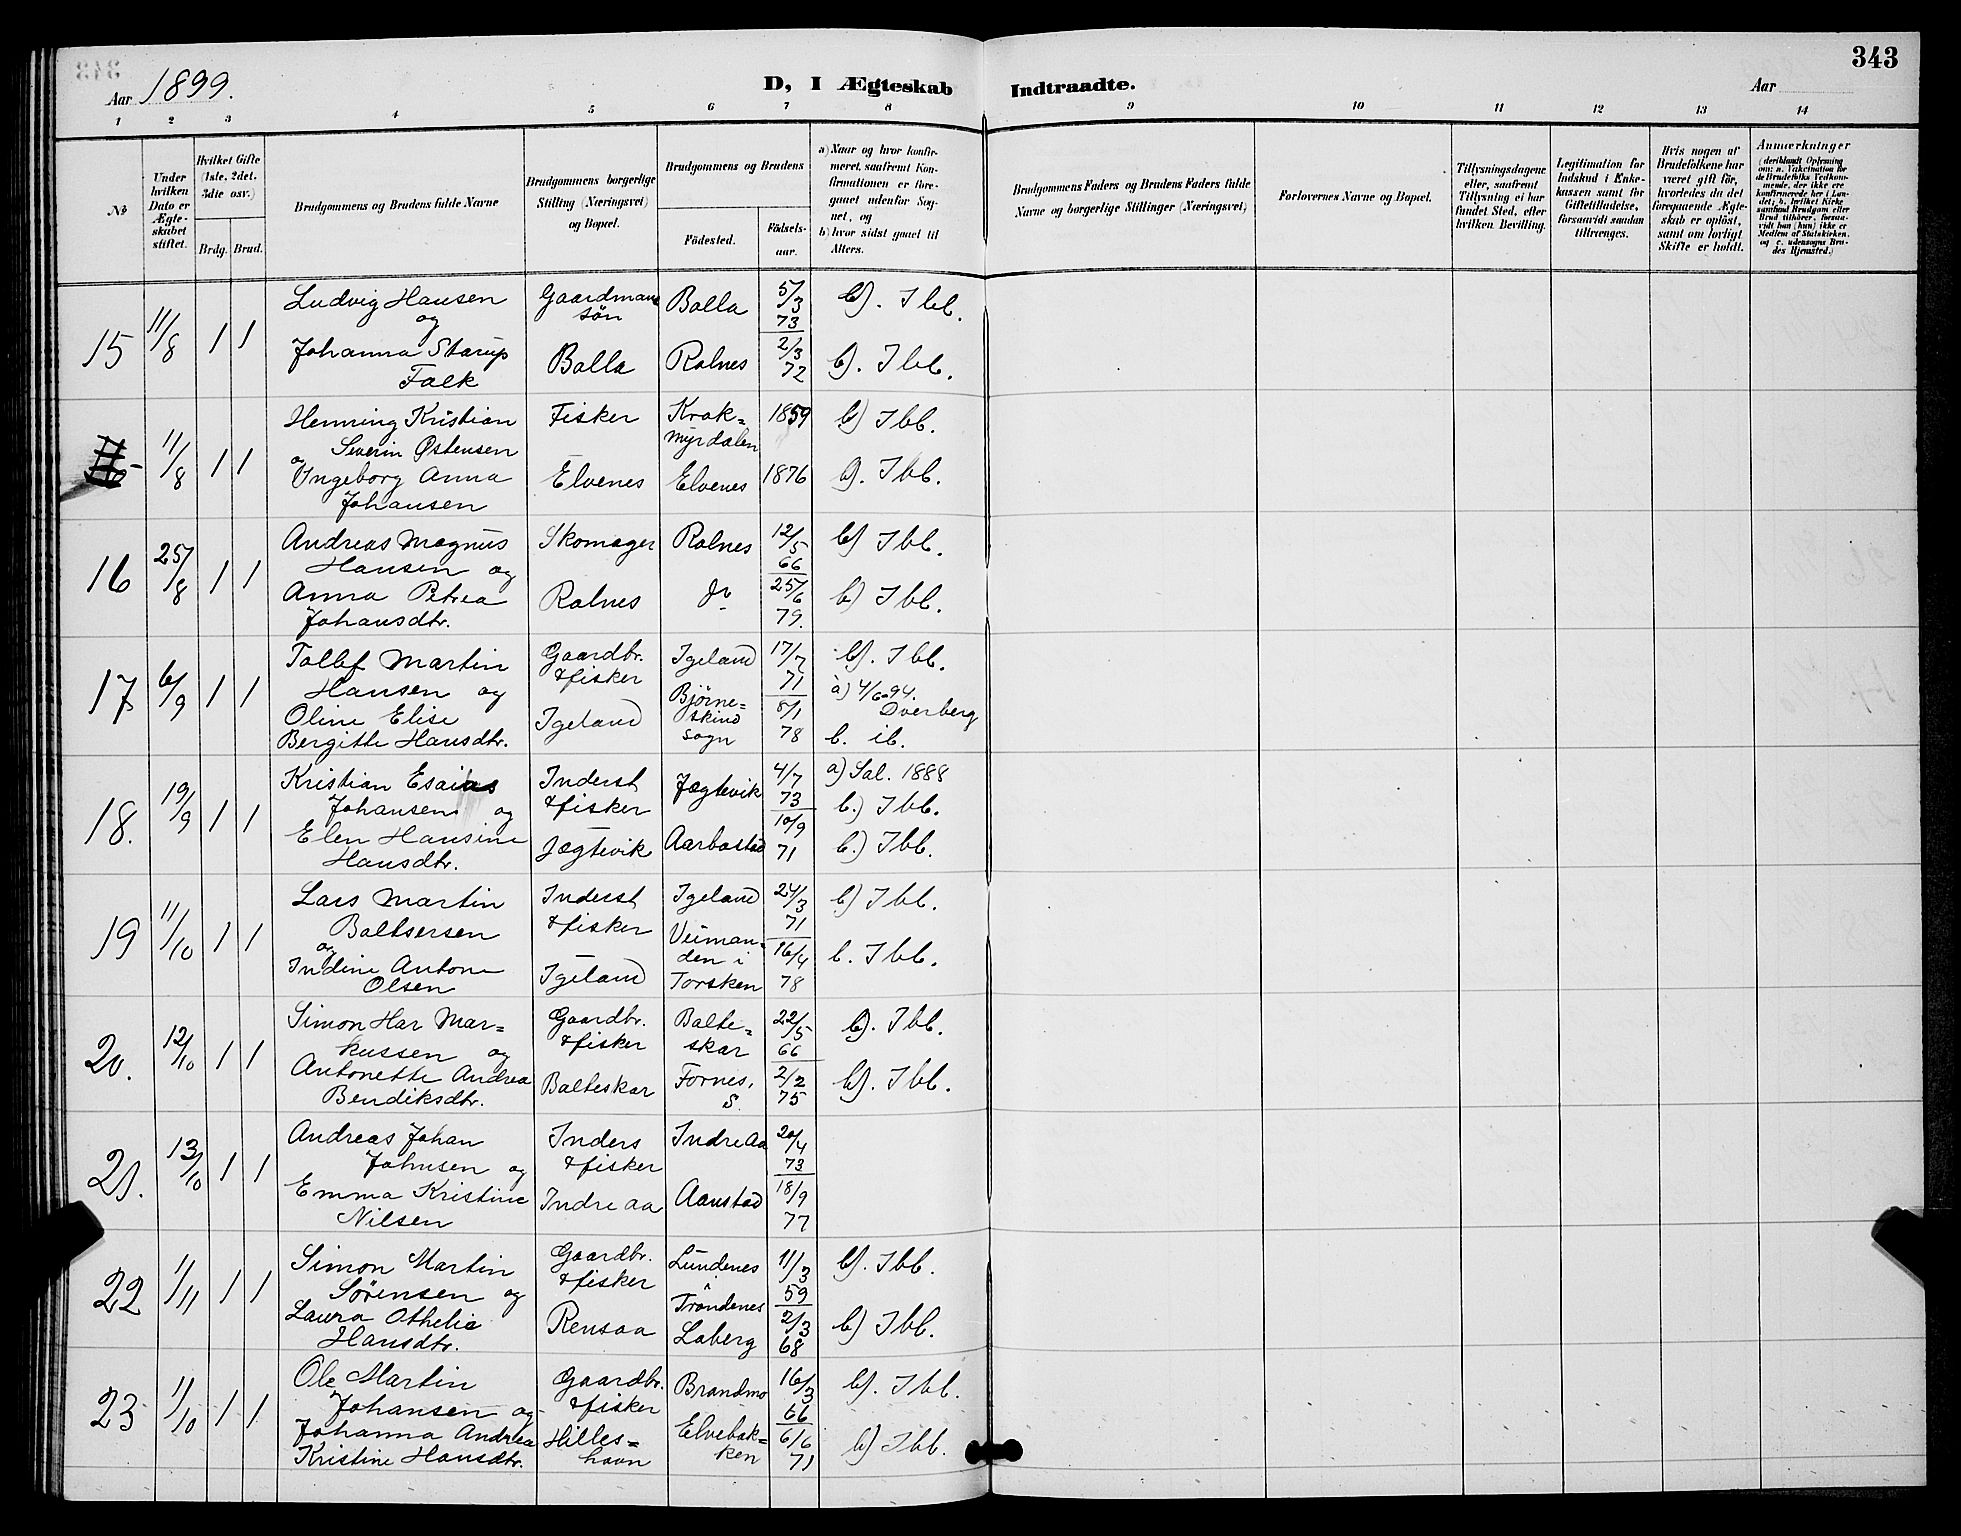 343
Aar 1899.
D, I Ægteskab Indtraadte.
Aar
1 2 3 4 5 6 7 8 9 10 11 12 13 14
№
Under hvilken Dato er Ægteskabet stiftet.
Hvilket Gifte (1ste, 2det, 3die osv.)
Brdg. Brud.
Brudgommens og Brudens fulde Navne
Brudgommens borgerlige Stilling (Næringsvei) og Bopæl.
Brudgommens og Brudens
Fødested. Fødselsaar.
a) Naar og hvor konfirmeret, saafremt Konfirmationen er foregaaet udenfor Sognet, og
b) hvor sidst gaaet til Alters.
Brudgommens Faders og Brudens Faders fulde Navne og borgerlige Stillinger (Næringsvei)
Forlovernes Navne og Bopæl.
Tillysningsdagene eller, saafremt Tillysning ei har fundet Sted, efter hvilken Bevilling.
Legitimation for Indskud i Enkekassen samt for Giftetilladelse, forsaavidt saadan tiltrænges.
Hvis nogen af Brudefolkene har været gift før, hvorledes da det foregaaende Ægteskab er opløst, samt om lovligt Skifte er holdt.
Anmærkninger
(deriblandt Oplysning om: a. Vakcination for de Brudefolks Vedkommende, der ikke ere konfirmerede her i Landet; b. hvilket Kirkesamfund Brudgom eller Brud tilhører, forsaavidt han (hun) ikke er Medlem af Statskirken, og c. udensogns Brudes Hjemsted.)
15 11/8 1 1 Ludvig Hansen Gaardmans Bolla 5/3 73 b). Ibb.
og søn
Johanna Starup Bolla Rolnes 2/3 72 b). Ibb.
Falk
11/8 1 1 Henning Kristian Fisker Krak= 1859 b) Ibb.
Severin Østensen myrdalen
og Ingeborg Anna Elvenes Elvenes 1876 b). Ibb.
Johansen
16 25/8 1 1 Andreas Magnus Skomager Rolnes 12/5 66 b) Ibb.
Hansen og
Anna Petrea Rolnes do 25/6 79. b) Ibb.
Johansdtr.
17 6/9 1 1 Tollef Martin Gaardbr. Igeland 17/7 71 b). Ibb.
Hansen og & fisker Bjørne= a) 4/6 94.
Oline Elise Igeland skind 8/1 78 Dverberg
Bergitte Hansdtr. Sogn b. ib.
18. 19/9 1 1 Kristian Esaias Inderst Jægtevik 4/7 73 a) Sal. 1888
Johansen og & fisker b.) Ibb.
Elen Hansine Jægtevik Aarbostad 10/9 71 b.) Ibb.
Hansdtr.
19 11/10 1 1 Lars Martin Inderst Igeland 24/3 71 b) Ibb.
Baltsersen & fisker Veiman=
og Indine Antone Igeland den i 16/4 78 b. Ibb.
Olsen Torsken
20. 12/10 1 1 Simon Har Mar= Gaardbr. Balte= 22/5 66 b). Ibb.
kussen og & fisker skar
Antonette Andrea Balteskar Fornes, 2/2 75 b). Ibb.
Bendiksdtr. S.
21. 13/10 1 1 Andreas Johan Inders Indre Aa 20/4 73
Johnsen og & fisker
Emma Kristine Indre aa Aanstad 18/9 77
Nilsen
22 1/11 1 1 Simon Martin Gaardbr. Lundenes 11/3 59 b). Ibb.
Sørensen og & fisker Trondenes
Laura Othelie Rensaa Laberg 2/3 68 b) Ibb.
Hansdtr.
23 1/10 1 1 Ole Martin Gaardbr. Brandmo 16/3 66 b). Ibb.
Johansen og & fisker
Johanna Andrea Hilles= Elvebak= 6/6 71 b) Ibb.
Kristine Hansdtr. havn ken